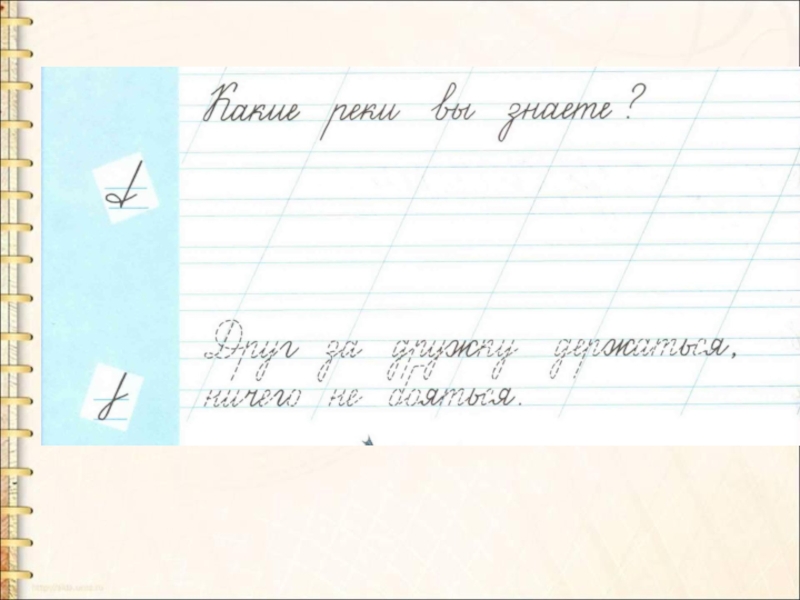 Какие реки вы знаете?
Друг за дружку держаться,
ничего не бояться.